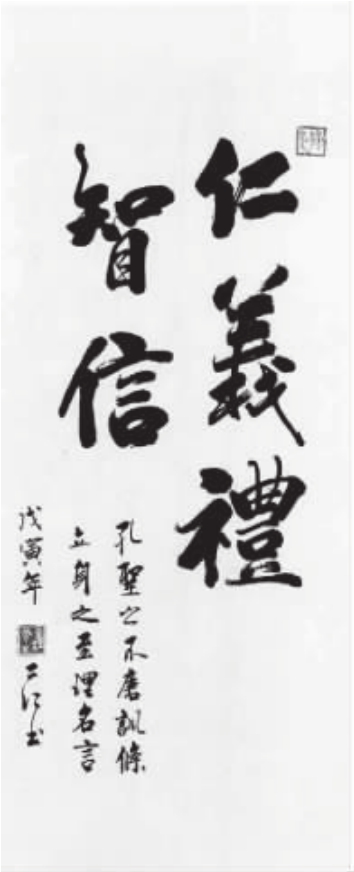 仁義禮
智信
孔聖之不磨訓條
立身之至理名言
戊寅年